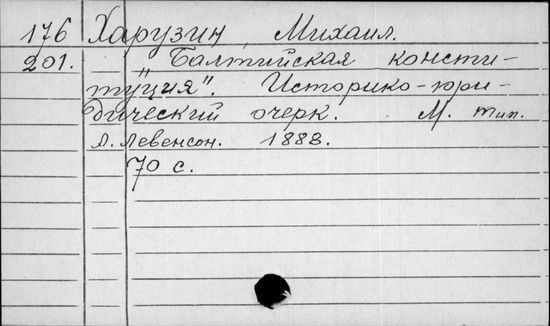 176 Харузин, Михаил.
201. „Балтийская консти-
туция". Историко-юри-
дический очерк. М. тип.
А. Левенсон. 1888.
70 с.